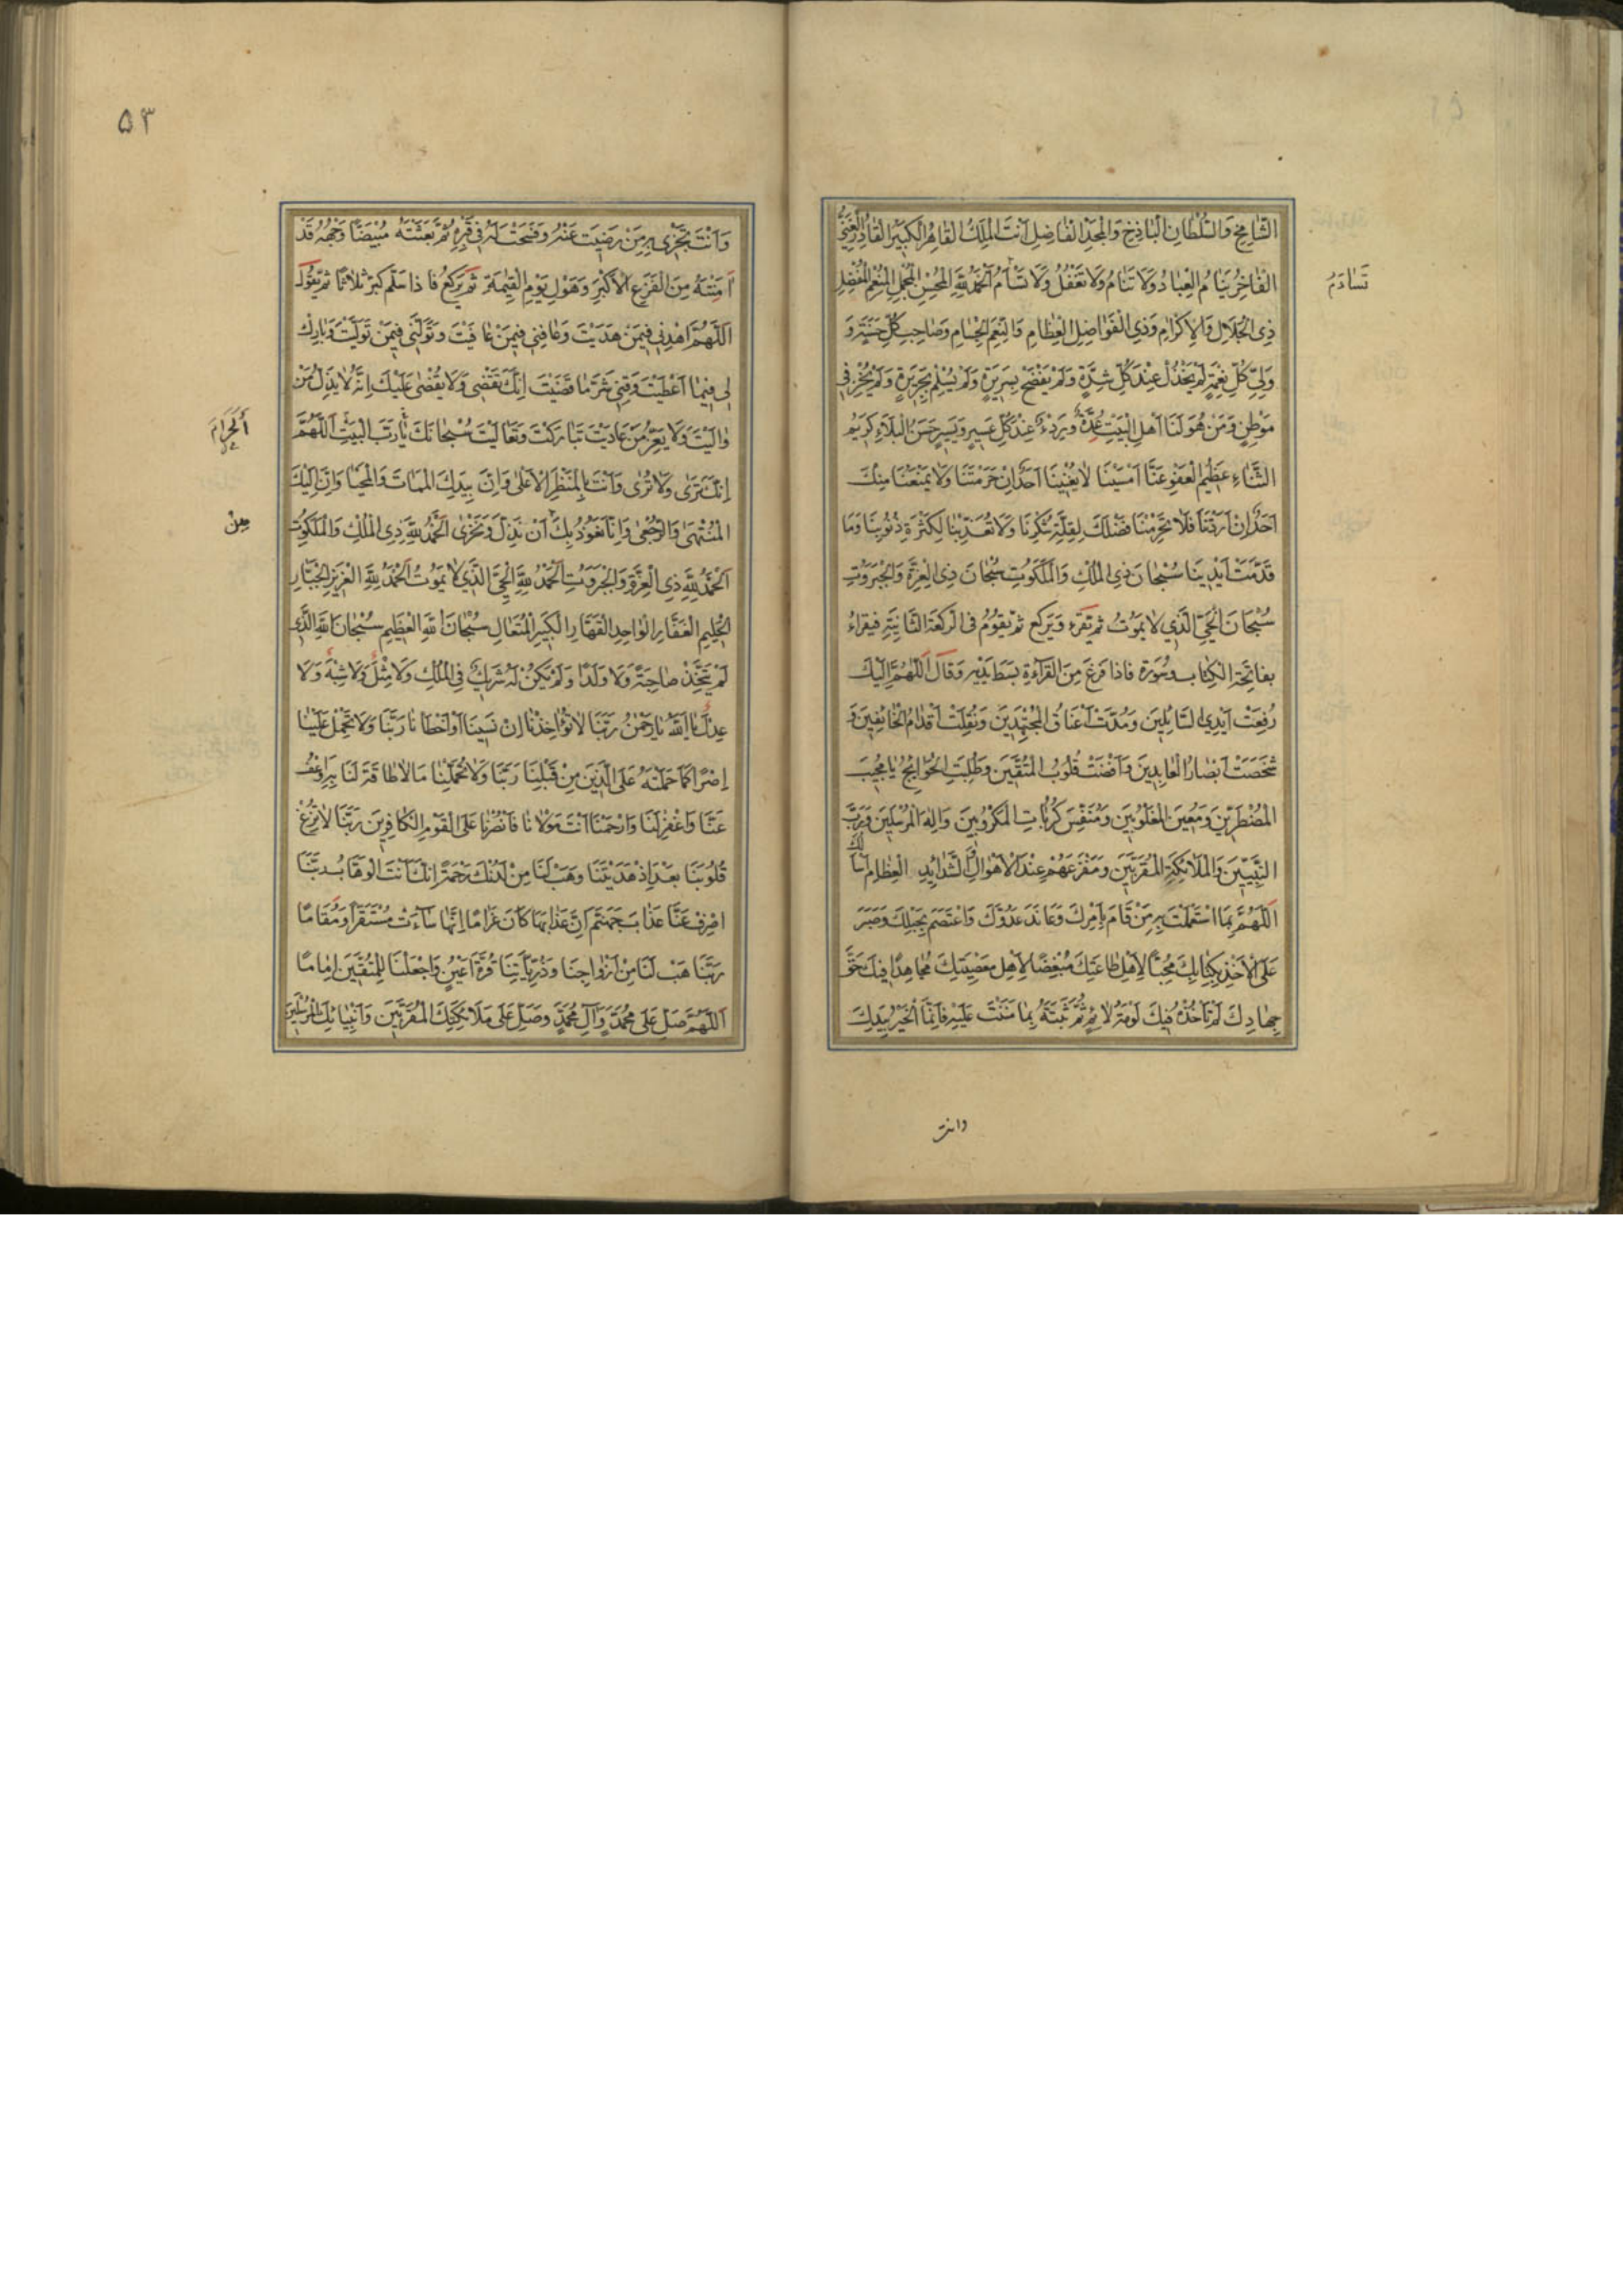 الشَّامِخِ وَالسُّلْطَانِ الْبَاذِخِ وَالْمَجْدِ الْفَاضِلِ اَنْتَ الْمَلِكُ الْقَاهِرُ الْكَبِيرُ الْقَادِرُ الْغَنِيُّ
الْفَاخِرُ يَنَامُ الْعِبَادُ وَلَا تَنَامُ وَلَا تَغْفُلُ وَلَا تَسْأَمُ اَلْحَمْدُ لِلّٰهِ الْمُحْسِنِ الْمُجْمِلِ الْمُنْعِمِ الْمُفْضِلِ
ذِي الْجَلَالِ وَالْاِكْرَامِ وَذِي الْفَوَاضِلِ الْعِظَامِ وَالنِّعَمِ الْجِسَامِ وَصَاحِبِ كُلِّ حَسَنَةٍ وَ
وَلِيِّ كُلِّ نِعْمَةٍ لَمْ يَخْذُلْ عِنْدَ كُلِّ شِدَّةٍ وَلَمْ يَفْضَحْ بِسَرِيرَةٍ وَلَمْ يُسْلِمْ بِجَرِيرَةٍ وَلَمْ يُخْزِ فِي
مَوْطِنٍ وَمَنْ هُوَ لَنَا اَهْلَ الْبَيْتِ عُدَّةٌ وَرِدْءٌ عِنْدَ كُلِّ عَسِيرٍ وَيَسِيرٍ حَسَنُ الْبَلَاءِ كَرِيمُ
الثَّنَاءِ عَظِيمُ الْعَفْوِ عَنَّا اَمْسَيْنَا لَا يُغْنِينَا اَحَدٌ اِنْ حَرَمْتَنَا وَلَا يَمْنَعُنَا مِنْكَ
اَحَدٌ اِنْ اَرَدْتَنَا فَلَا تَحْرِمْنَا فَضْلَكَ لِقِلَّةِ شُكْرِنَا وَلَا تُعَذِّبْنَا لِكَثْرَةِ ذُنُوبِنَا وَمَا
قَدَّمَتْ اَيْدِينَا سُبْحَانَ ذِي الْمُلْكِ وَالْمَلَكُوتِ سُبْحَانَ ذِي الْعِزَّةِ وَالْجَبَرُوتِ
سُبْحَانَ الْحَيِّ الَّذِي لَا يَمُوتُ ثم يَقْرَء وَيَركع ثم يَقُومُ فى الركعَة الثَّانِيَةِ فيقراءُ
بفاتِحَة الكِتاب وسُورَة فَاذا فرغَ مِنَ القرَاءَةِ بَسَط يَدَيْهِ وَقَالَ اَللّٰهُمَّ اِلَيْكَ
رُفِعَتْ اَيْدِي السَّائِلِينَ وَمُدَّتْ اَعْنَاقُ الْمُجْتَهِدِينَ وَنُقِلَتْ اَقْدَامُ الْخَائِفِينَ وَ
شَخَصَتْ اَبْصَارُ الْعَابِدِينَ وَاَفْضَتْ قُلُوبُ الْمُتَّقِينَ وَطُلِبَتِ الْحَوَائِجُ يَا مُجِيبَ
الْمُضْطَرِّينَ وَمُعِينَ الْمَغْلُوبِينَ وَمُنَفِّسَ كُرُبَاتِ الْمَكْرُوبِينَ وَاِلٰهَ الْمُرْسَلِينَ وَرَبَّ
النَّبِيِّينَ وَالْمَلَائِكَةِ الْمُقَرَّبِينَ وَمَفْزَعَهُمْ عِنْدَ الْاَهْوَالِ وَالشَّدَائِدِ الْعِظَامِ اَسْاَلُكَ
اَللّٰهُمَّ بِمَا اسْتَعْمَلْتَ بِهِ مَنْ قَامَ بِاَمْرِكَ وَعَانَدَ عَدُوَّكَ وَاعْتَصَمَ بِحَبْلِكَ وَصَبَرَ
عَلَى الْاَخْذِ بِكِتَابِكَ مُحِبًّا لِاَهْلِ طَاعَتِكَ مُبْغِضًا لِاَهْلِ مَعْصِيَتِكَ مُجَاهِدًا فِيكَ حَقَّ
جِهَادِكَ لَمْ تَاْخُذْهُ فِيكَ لَوْمَةُ لَائِمٍ ثُمَّ ثَبَّتَّهُ بِمَا مَنَنْتَ عَلَيْهِ فَاِنَّمَا الْخَيْرُ بِيَدِكَ
وانت
۵۳
وَاَنْتَ تَجْزِي بِهِ مَنْ رَضِيتَ عَنْهُ وَفَسَحْتَ لَهُ فِي قَبْرِهِ ثُمَّ بَعَثْتَهُ مُبْيَضًّا وَجْهُهُ قَدْ
اٰمَنْتَهُ مِنَ الْفَزَعِ الْاَكْبَرِ وَهَوْلِ يَوْمِ الْقِيٰمَةِ ثم يَركعُ فَاذا سَلَّم كبرّ ثلاثًا ثم يَقُولُ
اَللّٰهُمَّ اهْدِنِي فِيمَنْ هَدَيْتَ وَعَافِنِي فِيمَنْ عَافَيْتَ وَتَوَلَّنِي فِيمَنْ تَوَلَّيْتَ وَبَارِكْ
لِي فِيمَا اَعْطَيْتَ وَقِنِي شَرَّ مَا قَضَيْتَ اِنَّكَ تَقْضِي وَلَا يُقْضٰى عَلَيْكَ اِنَّهُ لَا يَذِلُّ مَنْ
وَالَيْتَ وَلَا يَعِزُّ مَنْ عَادَيْتَ تَبَارَكْتَ وَتَعَالَيْتَ سُبْحَانَكَ يَا رَبَّ الْبَيْتِ اَللّٰهُمَّ
اَلْحَرَامِ
اِنَّكَ تَرٰى وَلَا تُرٰى وَاَنْتَ بِالْمَنْظَرِ الْاَعْلٰى وَاِنَّ بِيَدِكَ الْمَمَاتَ وَالْمَحْيَا وَاِنَّ اِلَيْكَ
الْمُنْتَهٰى وَالرُّجْعٰى وَاِنَّا نَعُوذُ بِكَ اَنْ نَذِلَّ وَنَخْزٰى اَلْحَمْدُ لِلّٰهِ ذِي الْمُلْكِ وَالْمَلَكُوتِ
مِنْ
اَلْحَمْدُ لِلّٰهِ ذِي الْعِزَّةِ وَالْجَبَرُوتِ اَلْحَمْدُ لِلّٰهِ الْحَيِّ الَّذِي لَا يَمُوتُ اَلْحَمْدُ لِلّٰهِ الْعَزِيزِ الْجَبَّارِ
الْحَلِيمِ الْغَفَّارِ الْوَاحِدِ الْقَهَّارِ الْكَبِيرِ الْمُتَعَالِ سُبْحَانَ اللّٰهِ الْعَظِيمِ سُبْحَانَ اللّٰهِ الَّذِي
لَمْ يَتَّخِذْ صَاحِبَةً وَلَا وَلَدًا وَلَمْ يَكُنْ لَهُ شَرِيكٌ فِي الْمُلْكِ وَلَا مِثْلٌ وَلَا شِبْهٌ وَلَا
عِدْلٌ يَا اَللّٰهُ يَا رَحْمٰنُ رَبَّنَا لَا تُؤَاخِذْنَا اِنْ نَسِينَا اَوْ اَخْطَاْنَا رَبَّنَا وَلَا تَحْمِلْ عَلَيْنَا
اِصْرًا كَمَا حَمَلْتَهُ عَلَى الَّذِينَ مِنْ قَبْلِنَا رَبَّنَا وَلَا تُحَمِّلْنَا مَا لَا طَاقَةَ لَنَا بِهِ وَاعْفُ
عَنَّا وَاغْفِرْ لَنَا وَارْحَمْنَا اَنْتَ مَوْلَانَا فَانْصُرْنَا عَلَى الْقَوْمِ الْكَافِرِينَ رَبَّنَا لَا تُزِغْ
قُلُوبَنَا بَعْدَ اِذْ هَدَيْتَنَا وَهَبْ لَنَا مِنْ لَدُنْكَ رَحْمَةً اِنَّكَ اَنْتَ الْوَهَّابُ رَبَّنَا
اصْرِفْ عَنَّا عَذَابَ جَهَنَّمَ اِنَّ عَذَابَهَا كَانَ غَرَامًا اِنَّهَا سَآءَتْ مُسْتَقَرًّا وَمُقَامًا
رَبَّنَا هَبْ لَنَا مِنْ اَزْوَاجِنَا وَذُرِّيَّاتِنَا قُرَّةَ اَعْيُنٍ وَاجْعَلْنَا لِلْمُتَّقِينَ اِمَامًا
اَللّٰهُمَّ صَلِّ عَلٰى مُحَمَّدٍ وَآلِ مُحَمَّدٍ وَصَلِّ عَلٰى مَلَائِكَتِكَ الْمُقَرَّبِينَ وَاَنْبِيَائِكَ الْمُرْسَلِينَ